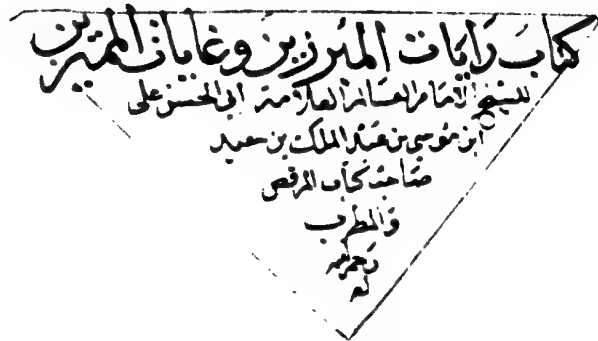 كتاب رايات المبرزين وغايات المميزين
للشيخ الامام العالم العلامة ابي الحسن علي
ابن موسى بن عبد الملك بن سعيد
صاحب كتاب المرقص
والمطرب
رحمه الله